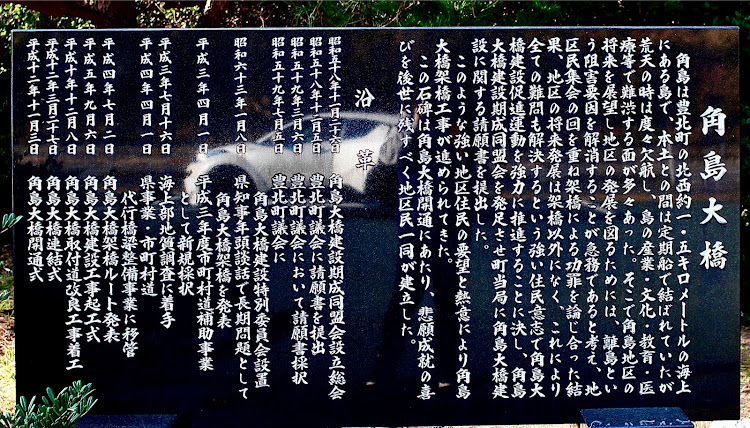 角島大橋
角島は豊北町の北西約一・五キロメートルの海上
にある島で、本土との間は定期船で結ばれていたが
荒天の時は度々欠航し、島の産業・文化・教育・医
療等で難渋する面が多々あった。そこで角島地区の
将来を展望し地区の発展を図るためには、離島とい
う阻害要因を解消することが急務であると考え、地
区民集会の回を重ね架橋による功罪を論じ合った結
果、地区の将来発展は架橋以外になく、これにより
全ての難問も解決するという強い住民意志で角島大
橋建設促進運動を強力に推進することに決し、角島
大橋建設期成同盟会を発足させ町当局に角島大橋建
設に関する請願書を提出した。
このような強い地区住民の要望と熱意により角島
大橋架橋工事が進められてきた。
この石碑は角島大橋開通にあたり、悲願成就の喜
びを後世に残すべく地区民一同が建立した。
沿革
昭和五十八年十一月二十六日 角島大橋建設期成同盟会設立総会
昭和五十八年十二月五日 豊北町議会に請願書を提出
昭和五十九年三月六日 豊北町議会において請願書採択
昭和五十九年七月五日 豊北町議会に
角島大橋建設特別委員会設置
昭和六十三年一月八日 県知事年頭談話で長期問題として
角島大橋架橋を発表
平成三年四月一日 平成三年度市町村道補助事業
として新規採択
平成三年七月十六日 海上部地質調査に着手
平成四年四月一日 県事業・市町村道
代行橋梁整備事業に移管
平成四年七月二日 角島大橋架橋ルート発表
平成五年九月六日 角島大橋建設工事起工式
平成十年十二月八日 角島大橋取付道改良工事着工
平成十二年三月二十七日 角島大橋連結式
平成十二年十一月三日 角島大橋開通式